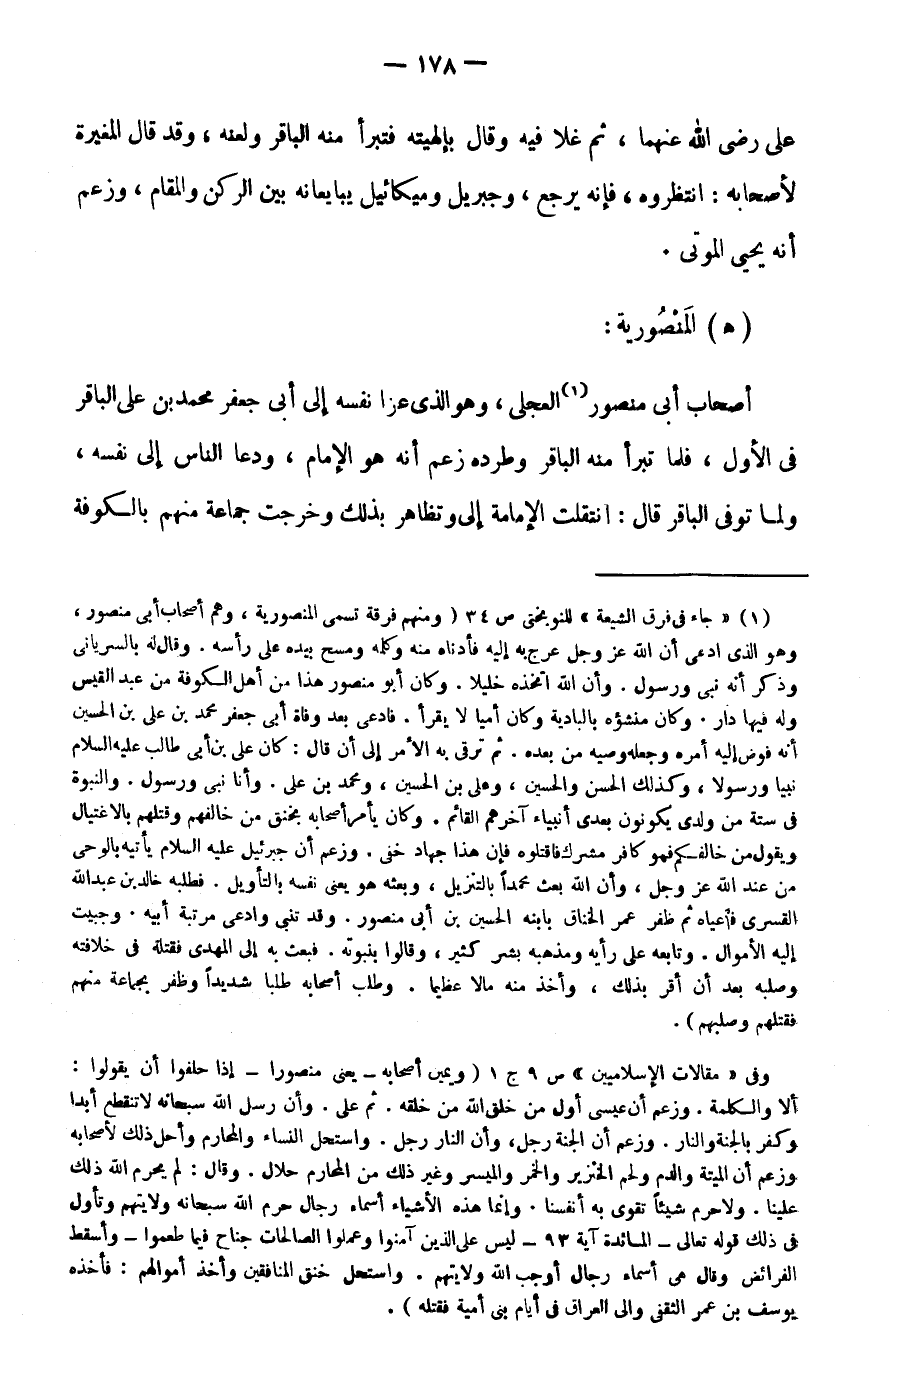 — ١٧٨ —
على رضى الله عنهما ، ثم غلا فيه وقال بإلهيته فتبرأ منه الباقر ولعنه ، وقد قال المغيرة
لأصحابه : انتظروه ، فإنه يرجع ، وجبريل وميكائيل يبايعانه بين الركن والمقام ، وزعم
أنه يحيى الموتى .
( ه ) المَنْصُورية :
أصحاب أبى منصور(١) العجلى ، وهو الذى عزا نفسه إلى أبى جعفر محمد بن على الباقر
فى الأول ، فلما تبرأ منه الباقر وطرده زعم أنه هو الإمام ، ودعا الناس إلى نفسه ،
ولما توفى الباقر قال : انتقلت الإمامة إلى وتظاهر بذلك وخرجت جماعة منهم بالكوفة
(١) « جاء فى فرق الشيعة » للنوبختى ص ٣٤ ( ومنهم فرقة تسمى المنصورية ، وهم أصحاب أبى منصور ،
وهو الذى ادعى أن الله عز وجل عرج به إليه فأدناه منه وكلمه ومسح بيده على رأسه . وقال له بالسريانى
وذكر أنه نبى ورسول . وأن الله اتخذه خليلا . وكان أبو منصور هذا من أهل الكوفة من عبد القيس
وله فيها دار . وكان منشؤه بالبادية وكان أميا لا يقرأ . فادعى بعد وفاة أبى جعفر محمد بن على بن الحسين
أنه فوض إليه أمره وجعله وصيه من بعده . ثم ترقى به الأمر إلى أن قال : كان على بن أبى طالب عليه السلام
نبيا ورسولا ، وكذلك الحسن والحسين ، وعلى بن الحسين ، ومحمد بن على . وأنا نبى ورسول . والنبوة
فى ستة من ولدى يكونون بعدى أنبياء آخرهم القائم . وكان يأمر أصحابه بخنق من خالفهم وقتلهم بالاغتيال
ويقول من خالفكم فهو كافر مشرك فاقتلوه فإن هذا جهاد خفى . وزعم أن جبرئيل عليه السلام يأتيه بالوحى
من عند الله عز وجل ، وأن الله بعث محمداً بالتنزيل ، وبعثه هو يعنى نفسه بالتأويل . فطلبه خالد بن عبد الله
القسرى فأعياه ثم ظفر عمر الخناق بابنه الحسين بن أبى منصور . وقد تنبى وادعى مرتبة أبيه . وجبيت
إليه الأموال . وتابعه على رأيه ومذهبه بشر كثير ، وقالوا بنبوته . فبعث به إلى المهدى فقتلة فى خلافته
وصلبه بعد أن أقر بذلك ، وأخذ منه مالا عظيما . وطلب أصحابه طلبا شديداً وظفر بجماعة منهم
فقتلهم وصلبهم ) .
وفى « مقالات الإسلاميين » ص ٩ ج ١ ( ويمين أصحابه – يعنى منصورا – إذا حلفوا أن يقولوا :
ألا والكلمة . وزعم أن عيسى أول من خلق الله من خلقه . ثم على . وأن رسل الله سبحانه لا تنقطع أبدا
وكفر بالجنة والنار . وزعم أن الجنة رجل، وأن النار رجل . واستحل النساء والمحارم وأحل ذلك لأصحابه
وزعم أن الميتة والدم ولحم الخنزير والخمر والميسر وغير ذلك من المحارم حلال . وقال : لم يحرم الله ذلك
علينا . ولا حرم شيئاً تقوى به أنفسنا . وإنما هذه الأشياء أسماء رجال حرم الله سبحانه ولايتهم وتأول
فى ذلك قوله تعالى – المائدة آية ٩٣ – ليس على الذين آمنوا وعملوا الصالحات جناح فيما طعموا – وأسقط
الفرائض وقال هى أسماء رجال أوجب الله ولايتهم . واستحل خنق المنافقين وأخذ أموالهم : فأخذه
يوسف بن عمر الثقفى والى العراق فى أيام بنى أمية فقتله ) .